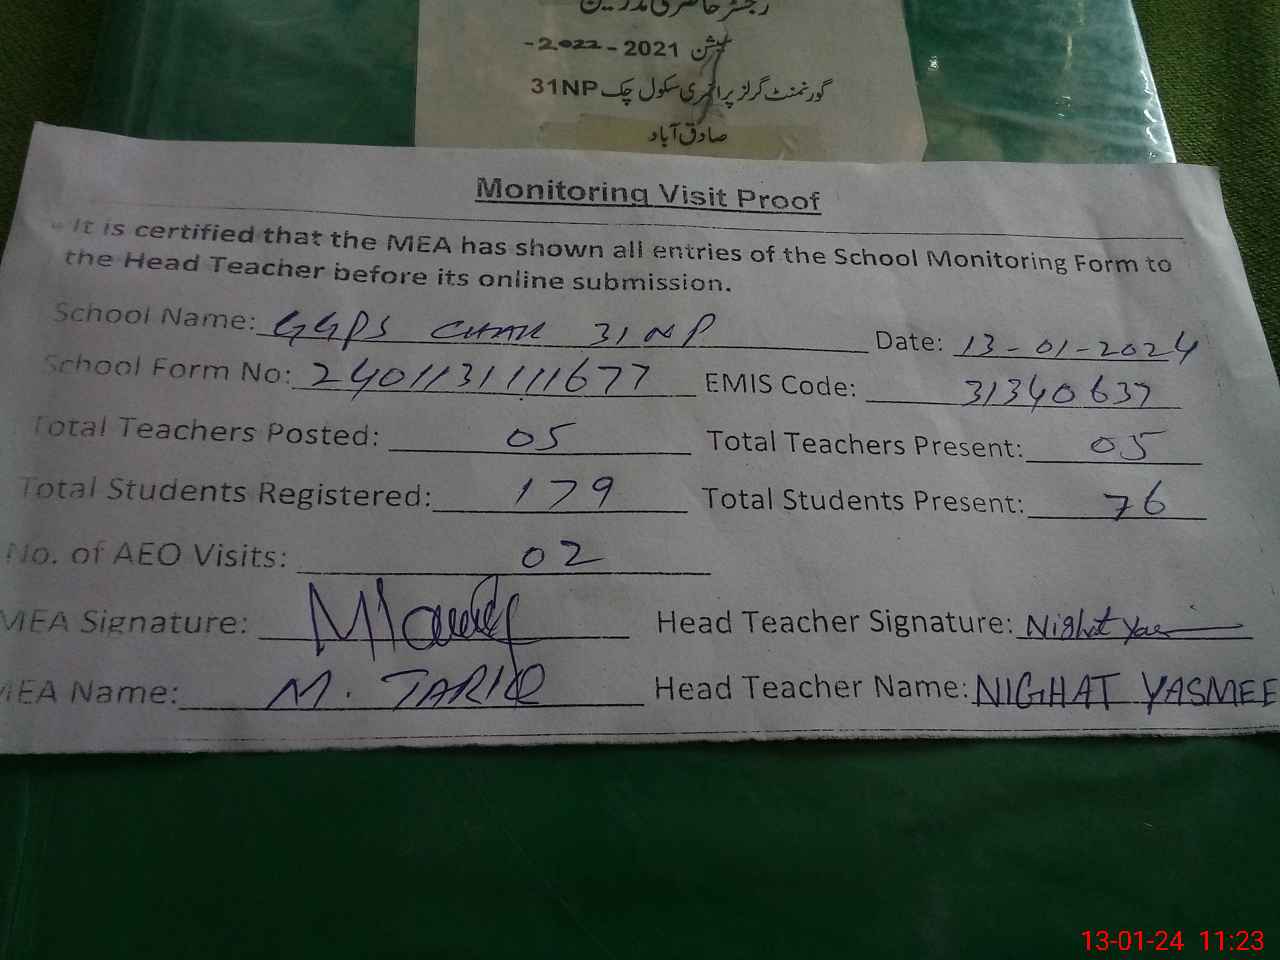 رجسٹر حاضری مدرسین
سیشن 2021 - 2022-
گورنمنٹ گرلز پرائمری سکول چک 31NP
صادق آباد
Monitoring Visit Proof
It is certified that the MEA has shown all entries of the School Monitoring Form to
the Head Teacher before its online submission.
School Name: GGPS CHAK 31 NP Date: 13-01-2024
School Form No: 2401131111677 EMIS Code: 31340637
Total Teachers Posted: 05 Total Teachers Present: 05
Total Students Registered: 179 Total Students Present: 76
No. of AEO Visits: 02
MEA Signature: Head Teacher Signature: Nighat Yas
MEA Name: M. TARIQ Head Teacher Name: NIGHAT YASMEE
13-01-24 11:23